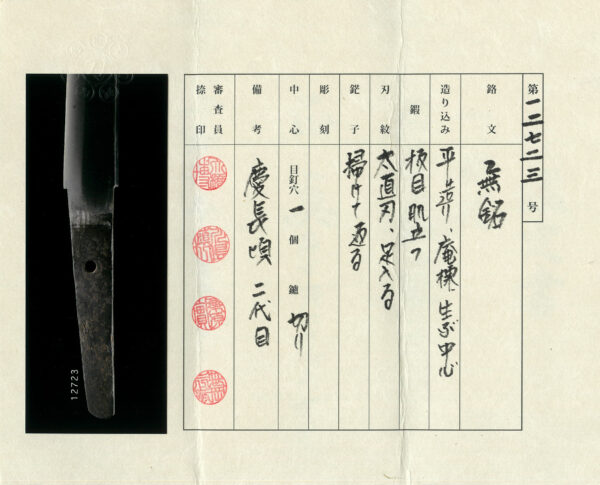 第一二七二三号
銘文 無銘
造り込み 平造り、庵棟、生ぶ中心
鍛 板目肌立つ
刃紋 太直刃、足入る
鋩子 掃けて返る
彫刻
中心 目釘穴 一 個 鑢 切り
備考 慶長頃 二代目
審査員捺印
12723